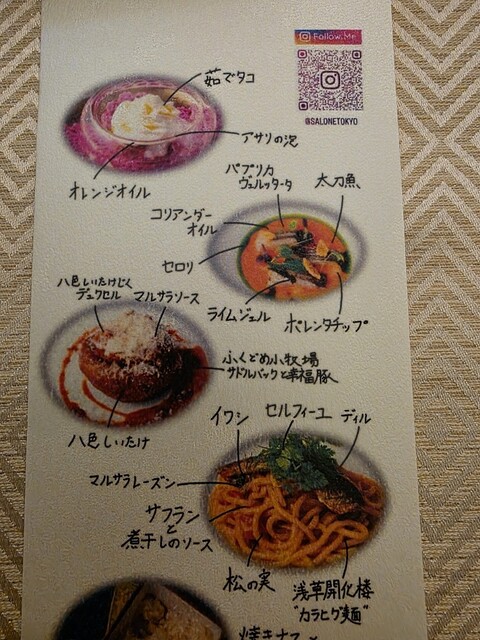 Follow Me
@SALONETOKYO
茹でタコ
アサリの泡
オレンジオイル
パプリカ
ヴェルッタータ
太刀魚
コリアンダー
オイル
セロリ
ライムジェル
ポレンタチップ
八色しいたけじく
デュクセル
マルサラソース
ふくどめ小牧場
サドルバックと幸福豚
八色しいたけ
イワシ
セルフィーユ
ディル
マルサラレーズン
サフラン
と
煮干しのソース
松の実
浅草開化楼
"カラヒグ麺"
焼きナス